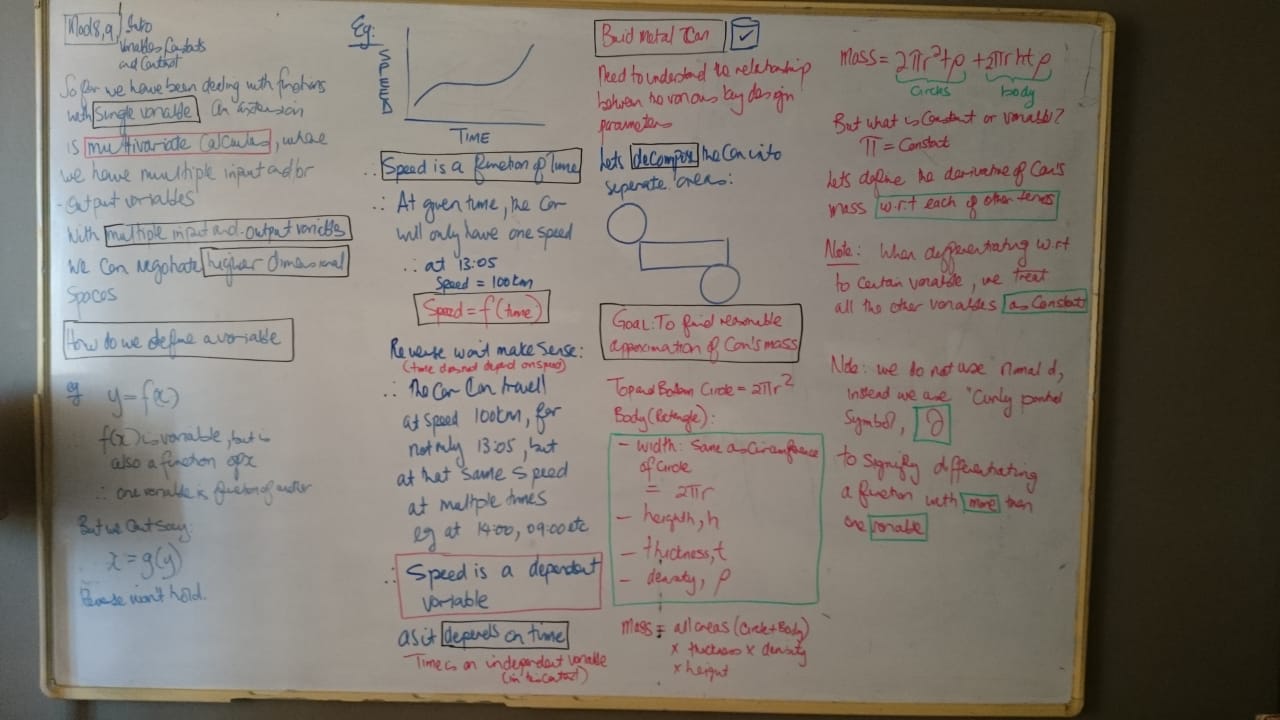 Mod 8,9 Intro
Variables, Constants
and Context
So far we have been dealing with functions
with single variable. An extension
is multivariate calculus, where
we have multiple input and/or
-output variables
With multiple input and-output variables
We can negotiate higher dimensional
spaces
How do we define a variable
eg y = f(x)
f(x) is variable, but is
also a function of x
∴ one variable is function of another
But we Can't say:
x = g(y)
won't hold.
Eg:
SPEED
TIME
∴ Speed is a function of Time
∴ At given time, the car
will only have one speed
∴ at 13:05
Speed = 100km
Speed = f(time)
Reverse won't make sense:
(time does not depend on speed)
∴ The Car Can travel
at speed 100km, for
not only 13:05, but
at that same speed
at multiple times
eg at 14:00, 09:00 etc
∴ Speed is a dependent
variable
as it depends on time
Time is an independent variable
(in this context)
Build Metal Can
Need to understand the relationship
between the various key design
parameters
Lets decompose the Can into
seperate areas:
GOAL: To find reasonable
approximation of Can's mass
Top and Bottom Circle = 2πr²
Body (Retangle):
- width: Same as Circumference
of circle
= 2πr
- heighth, h
- thickness, t
- density, ρ
Mass = all areas (Circle + Body)
x thickness x density
x height
mass = 2πr²tρ + 2πrhtρ
circles body
But what is Constant or variable?
π = Constant
Lets define the derivative of Can's
mass w.r.t each of other terms
Note: When differentiating w.r.t
to Certain variable, we treat
all the other variables as Constant
Note: we do not use normal d,
instead we use "Curly partial
Symbol", ∂
to signify differentiating
a function with more than
one variable